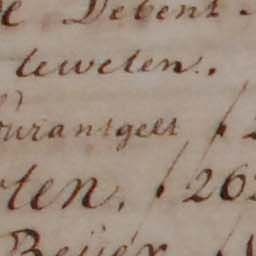 e Debent.
teweten.
Courantgelt f 2
ten. f 262
Beijer f